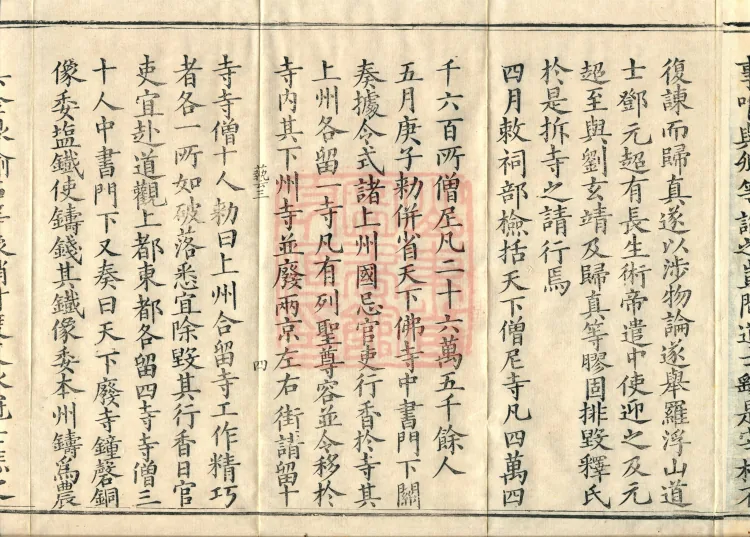 復諫而歸真遂以涉物論遂舉羅浮山道
士鄧元超有長生術帝遣中使迎之及元
超至與劉玄靖及歸真等膠固排毀釋氏
於是拆寺之請行焉
四月敕祠部檢括天下僧尼寺凡四萬四
千六百所僧尼凡二十六萬五千餘人
五月庚子勅併省天下佛寺中書門下關
奏據令式諸上州國忌官吏行香於寺其
上州各留一寺凡有列聖尊容並令移於
寺內其下州寺並廢兩京左右街請留十
藝三
四
寺寺僧十人勅曰上州合留寺工作精巧
者各一所如破落悉宜除毀其行香日官
吏宜赴道觀上都東都各留四寺寺僧三
十人中書門下又奏曰天下廢寺鐘磬銅
像委塩鐵使鑄錢其鐵像委本州鑄爲農